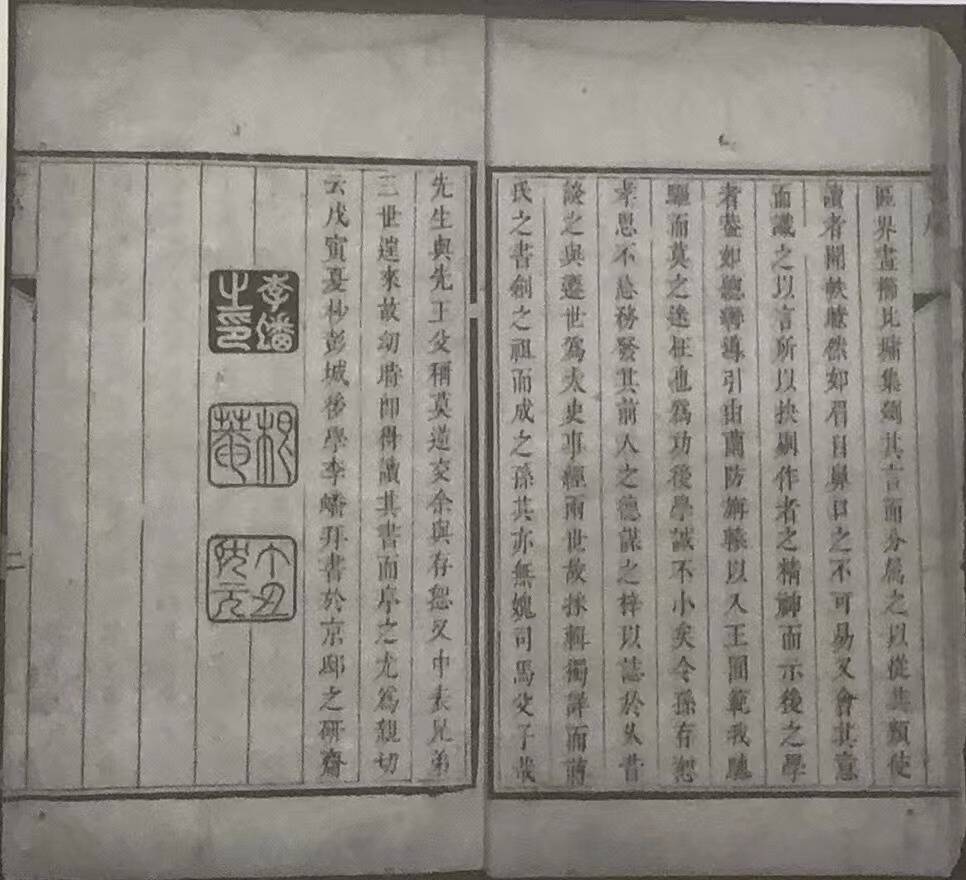 區界畫櫛比墉集其言而分屬之以從其類使
讀者開帙瞭然如眉目鼻口之不可易又會其意
而識之以言所以抉剔作者之精神而示後之學
者蓋如轡導引由蘭防以入王園範我馳
驅而莫之迷枉也為功後學誠不小矣令孫有恕
孝思不怠務發其前人之德謀之梓以誌於久昔
談之與遷世為太史事經兩世故採輯獨詳而前
氏之書創之祖而成之孫其亦無媿司馬父子哉
先生與先王父稱莫逆交余與存恕又中表兄弟
三世遞來故幼時即得讀其書而序之尤為親切
云戊寅夏杪彭城後學李蟠拜書於京邸之研齋
李蟠之印
根菴
丁丑狀元
序
二